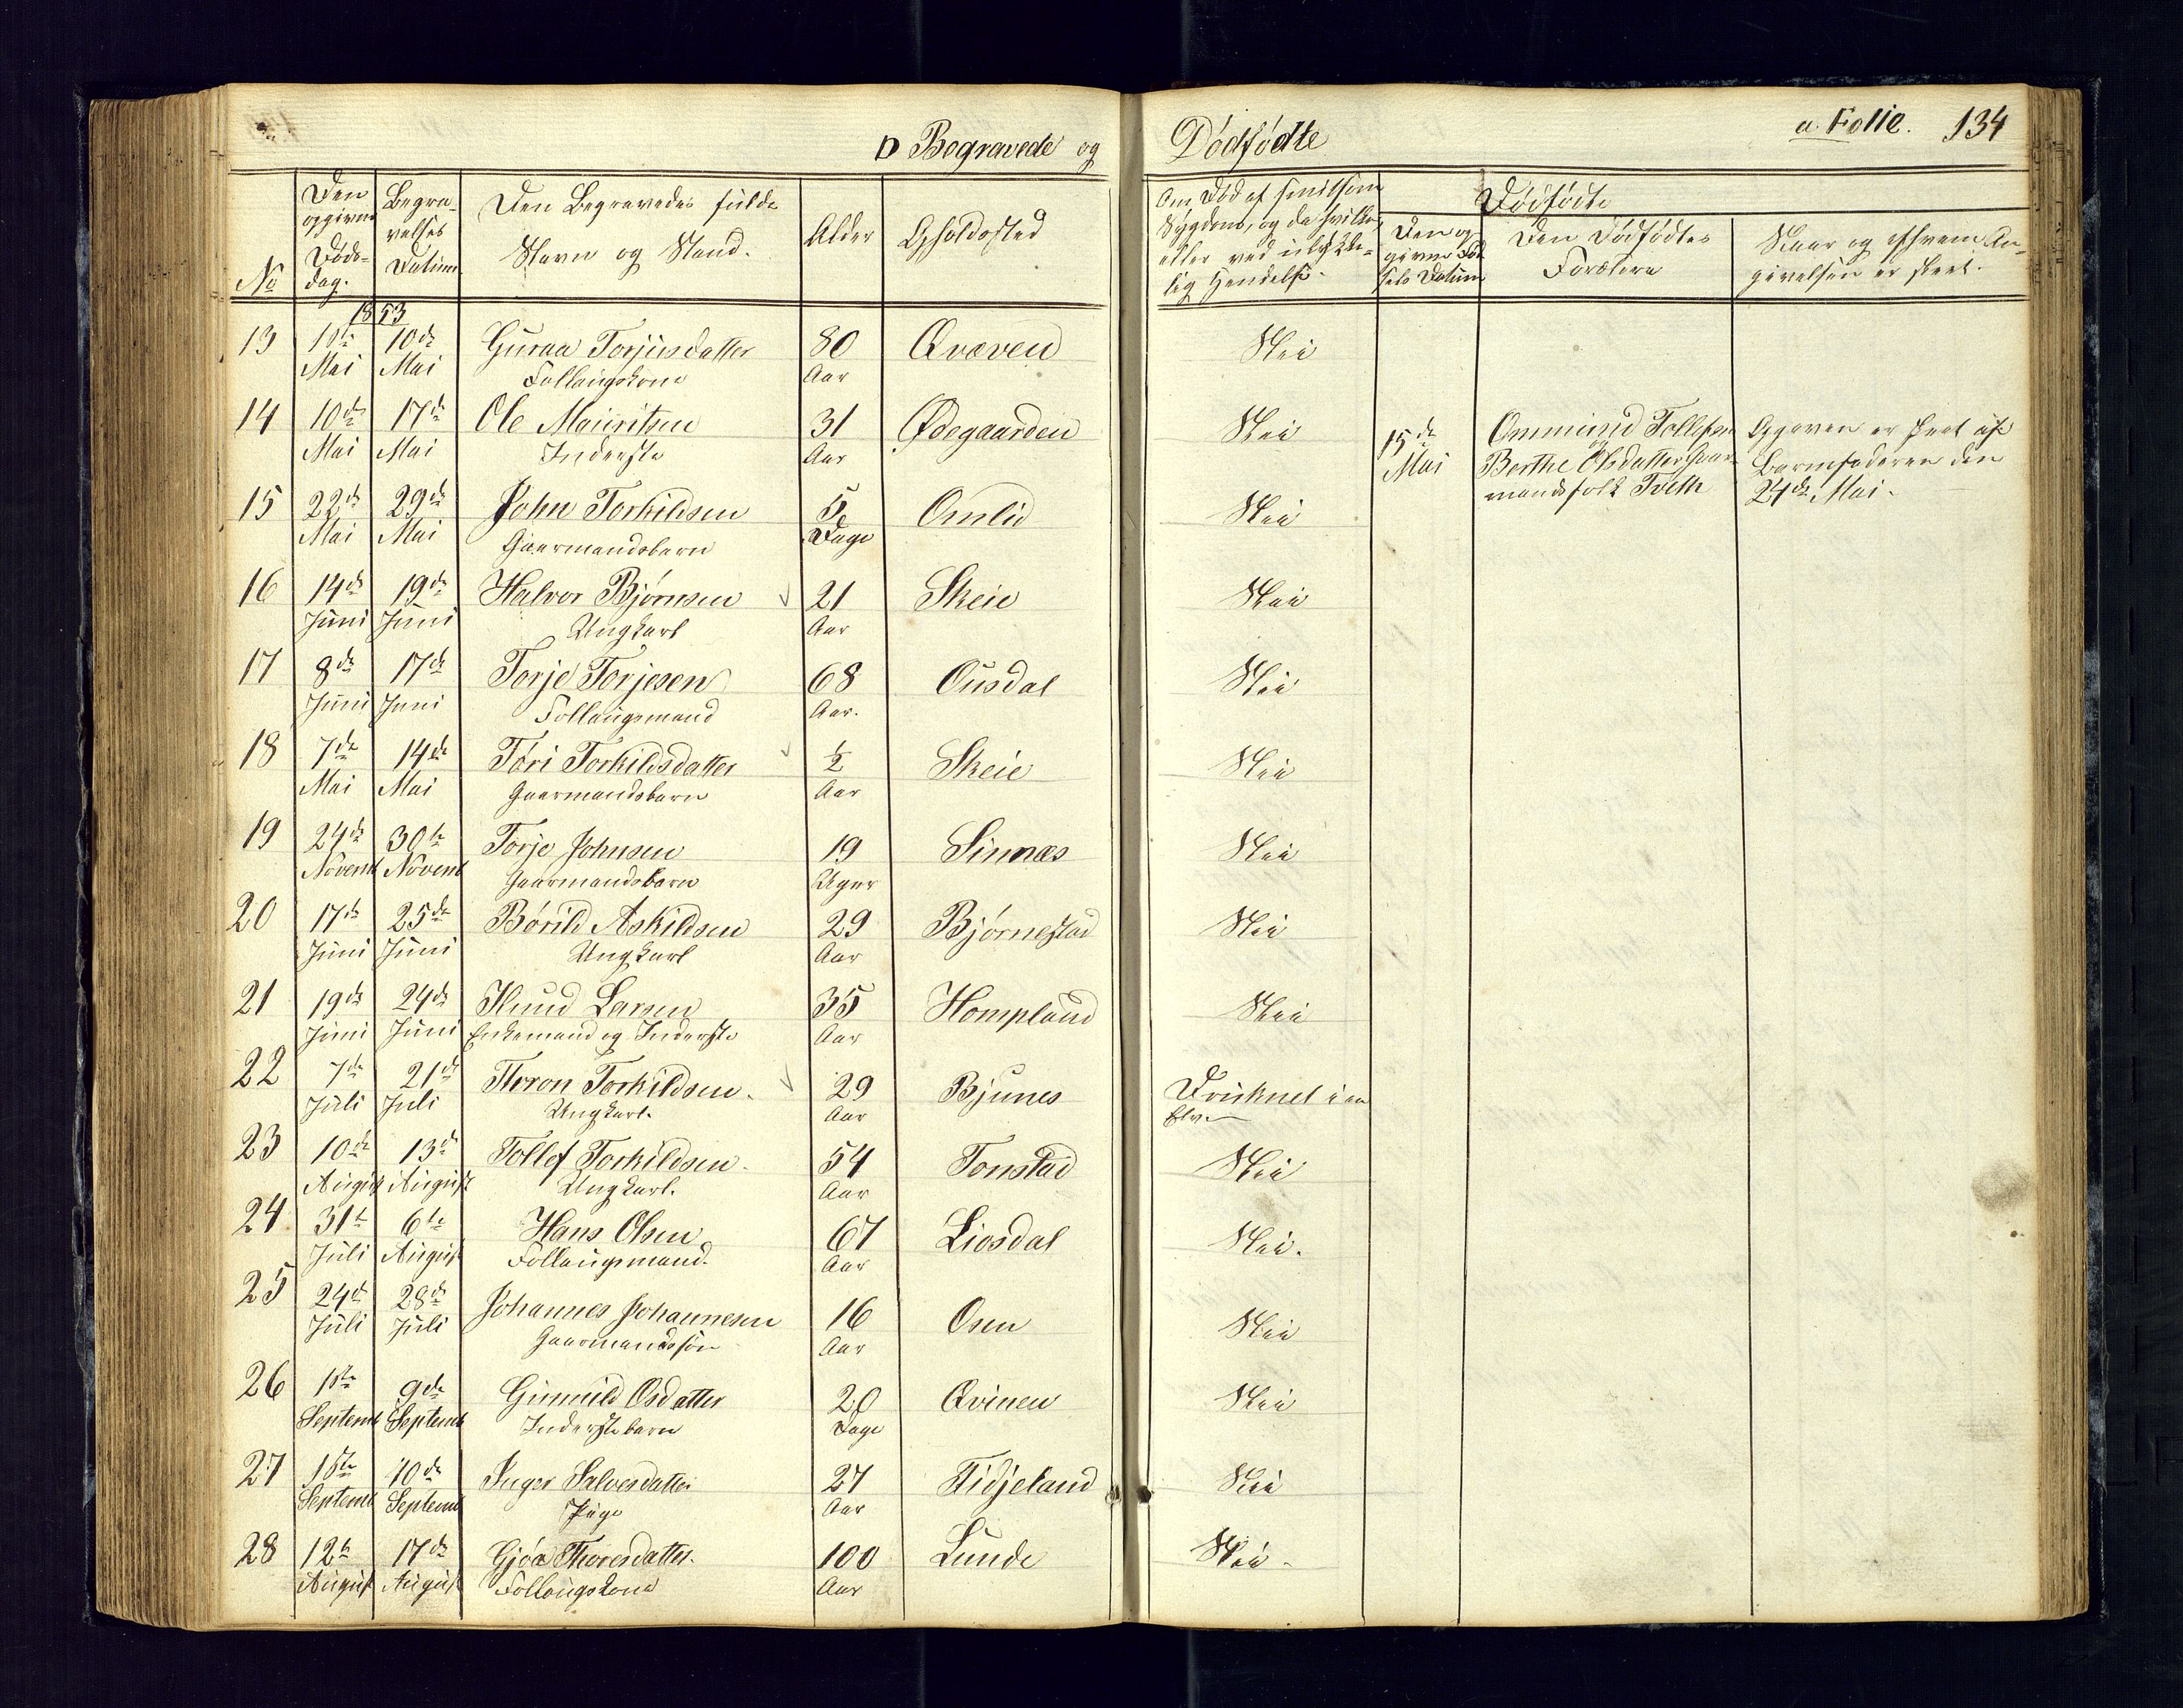 D Begravede og Dödfödte a. Folie. 134
No
Den opgivne Döds-dag.
Begra-velses Datum.
Den Begravedes fulde Navn og Stand.
Alder
Opholdssted
Om Död af smitsom Sygdom, og da hvilken, eller ved ulykke-lig Hendelse.
Dödfödte
Den op-givne Föd-sels Datum
Den Dödfödtes Forældre
Naar og af hvem An-givelsen er skeet.
1853
13 1ste 10de Guraa Torjusdatter 80 Qvæven Nei
Mai Mai Follaugskone Aar
14 10de 17de Ole Mauritsen 31 Ødegaarden Nei
Mai Mai Inderste Aar
15de Mai
Ommund Tollefsen
og
Berthe Olsdatter Gaar-
mandsfolk Tveth
Opgaven er skeet af
Barnefaderen den
24de Mai.
15 22de 29de John Torkildsen 5 Omlid Nei
Mai Mai Gaarmandsbarn Dage
16 14de 19de Halvor Björnsen 21 Skeie Nei
Juni Juni Ungkarl Aar
17 8de 17de Torje Torjesen 68 Ousdal Nei
Juni Juni Follaugsmand Aar.
18 7de 14de Töri Torkildsdatter ½ Skeie Nei
Mai Mai Gaarmandsbarn Aar
19 24de 30te Torje Johnsen 19 Sinnæs Nei
Novemb Novemb Gaarmandsbarn Uger
20 17de 25de Börild Askildsen 29 Björnestad Nei
Juni Juni Ungkarl Aar
21 19de 24de Knud Larsen 35 Hompland Nei
Juni Juni Enkemand og Inderste Aar
22 7de 21de Thron Torkildsen. 29 Bjunes Druknet i en
Juli Juli Ungkarl. Aar Elv.
23 10de 13de Tollef Torkildsen. 54 Tonstad Nei
August August Ungkarl. Aar
24 31te 6te Hans Olsen 67 Liosdal Nei.
Juli August Follaugsmand. Aar
25 24de 28de Johannes Johannesen 16 Osen Nei
Juli Juli Gaarmandssön Aar
26 1ste 9de Gunnild Osdatter 20 Qvinen Nei
Septemb Septemb Inderstebarn Dage
27 1ste 10de Inger Salvesdatter 27 Fidjeland Nei
Septemb Septemb Pige Aar
28 12te 17de Gjöa Thoresdatter. 100 Lunde Nei.
August August Follaugskone Aar